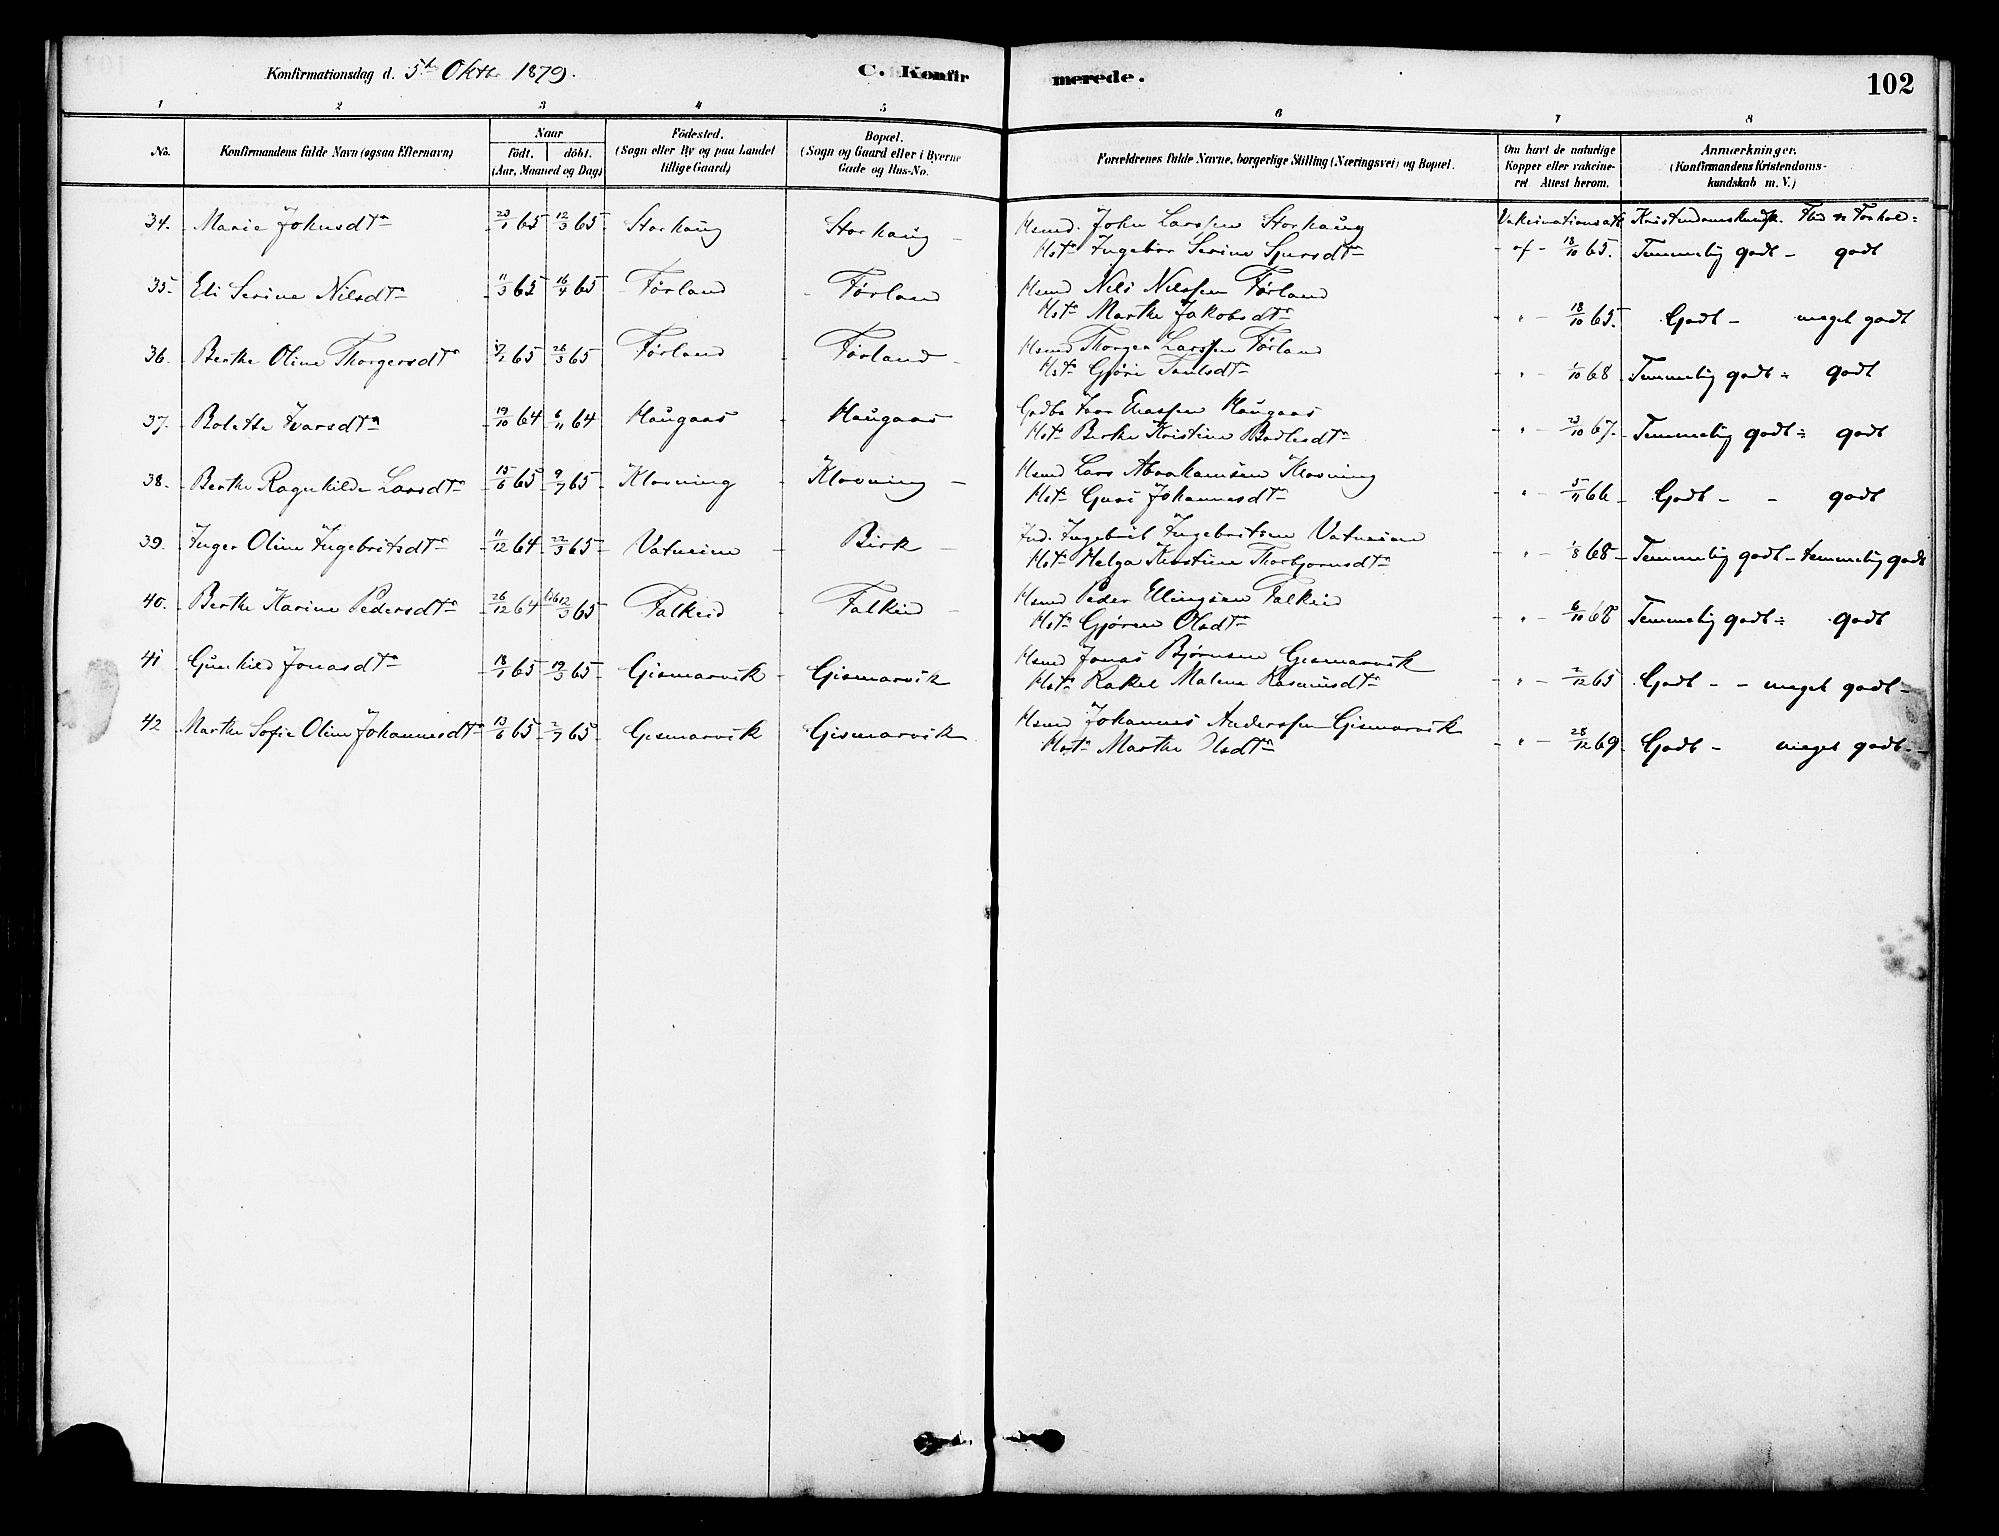 Konfirmationsdag d. 5t Oktr 1879.
C. Konfirmerede.
102
1 2 3 4 5 6 7 8
No.
Konfirmandens fulde Navn (ogsaa Efternavn)
Naar
Født. døbt.
(Aar, Maaned og Dag)
Fødested.
(Sogn eller By og paa Landet
tillige Gaard)
Bopæl.
(Sogn og Gaard eller i Byerne
Gade og Hus-No.
Forældrenes fulde Navne, borgerlige Stilling (Næringsvei) og Bopæl.
Om havt de naturlige
Kopper eller vakcine-
ret Attest herom.
Anmærkninger.
(Konfirmandens Kristendoms-
kundskab m. V.)
34. Marie Johnsdtr 23/1 65 12/3 65 Storhaug Storhaug Hsmd. John Larssen Storhaug Vakcinationsatt Kristendomskundsk. Flid og Forhol=
Hst: Ingebor Serine Sjursdtr - af - 18/10 65. Temmelig godt - godt
35. Eli Serine Nilsdtr 11/3 65 16/4 65 Førland Førland Hsmd Nils Nilssen Førland
Hst: Marthe Jakobsdtr - " - 18/10 65. Godt - meget godt
36. Berthe Oline Thorgersdtr 17/2 65 26/3 65 Førland Førland Hsmd Thorger Larssen Førland
Hst: Gjøri Paulsdtr - " - 1/10 68 Temmelig godt - godt
37. Bolette Ivarsdtr 19/10 64 6/11 64 Haugaas Haugaas Gadbr Ivar Eliassen Haugaas
Hst: Berthe Kristine Bodlesdtr - " - 23/10 67. Temmelig godt - godt
38. Berthe Ragnhilde Larsdtr 15/6 65 9/7 65 Klovning Klovning Hsmd Lars Abrahamsen Klovning
Hst: Guri Johannesdtr - " - 5/11 66 Godt - - godt
39. Inger Oline Ingebritsdtr 11/12 64 22/3 65 Vatneim Birk Ind. Ingebrit Ingebritsen Vatneim
Hst: Helga Kristine Thorbjørnsdtr - " - 1/8 68 Temmelig godt - temmelig godt
40. Berthe Karine Pedersdtr 26/12 64 12/3 65 Falkeid Falkeid Hsmd Peder Ellingsen Falkeid
Hst: Gjøren Olsdtr - " - 6/10 68 Temmelig godt - godt
41 Gunhild Jonasdtr 18/1 65 19/3 65 Gismarvik Gismarvik Hsmd Jonas Bjørnsen Gismarvik
Hst: Rakel Malene Rasmusdtr - " - 2/12 65 Godt - - meget godt -
42 Marthe Sofie Oline Johannesdtr 13/6 65 2/7 65 Gismarvik Gismarvik Hsmd Johannes Anderssen Gismarvik
Hst: Marthe Olsdtr - " - 28/12 69 Godt - meget godt -